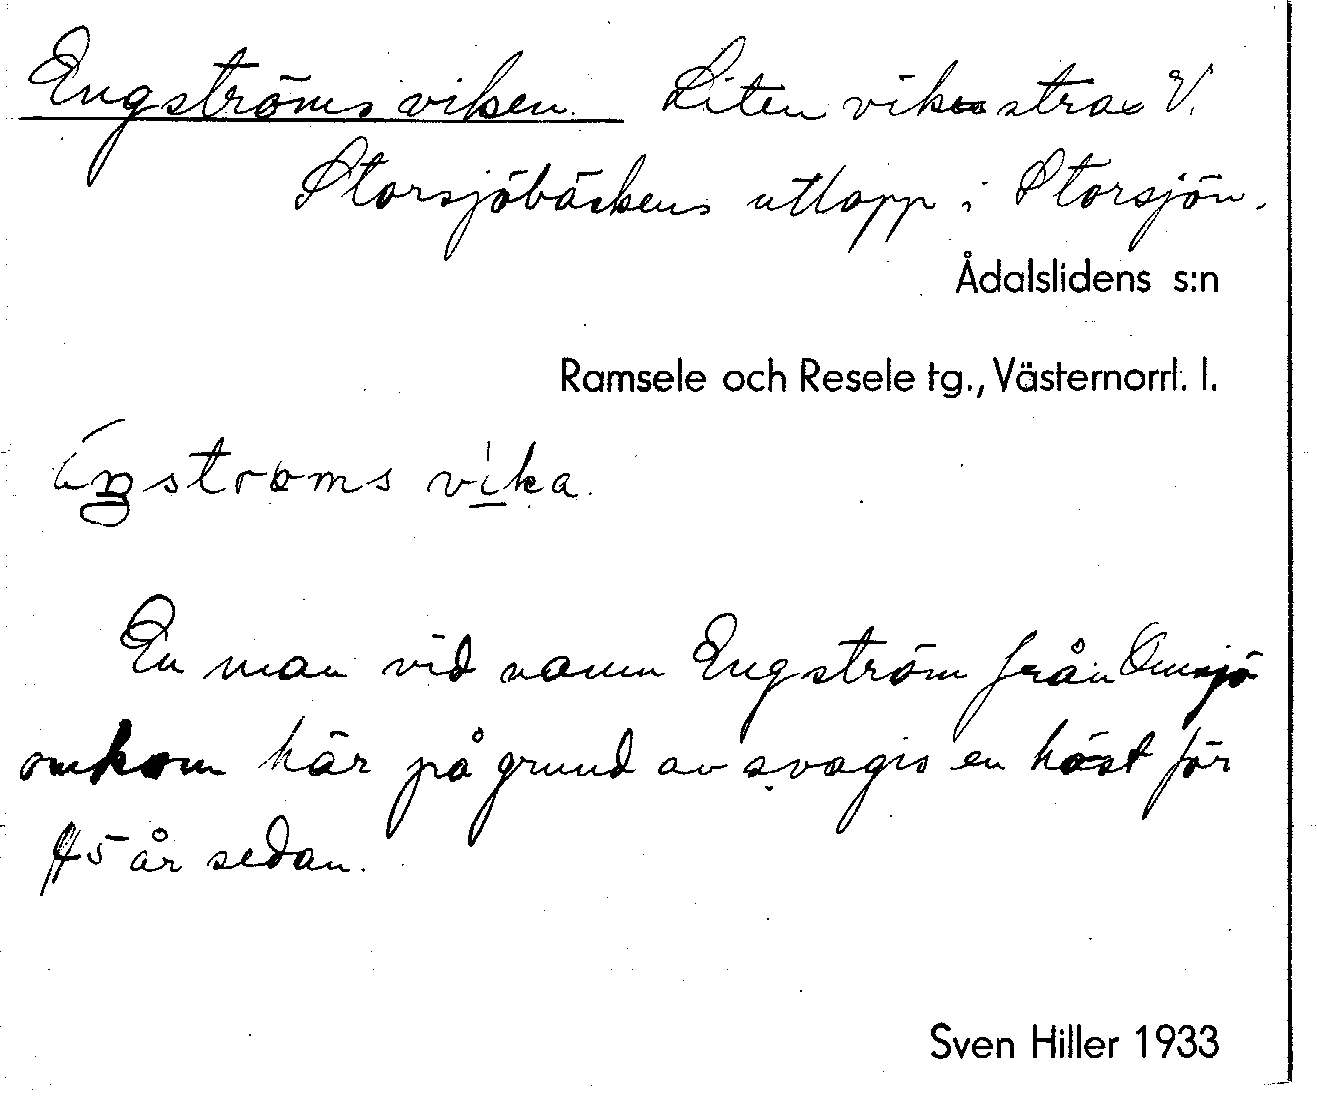 Engströmsviken. Liten vik strax V.
Storsjöbäckens utlopp i Storsjön.
Ådalslidens s:n
Ramsele och Resele tg., Västernorrl. l.
vika.
En man vid namn Engström från Omsjö
omkom här på grund av svagis en höst för
45 år sedan.
Sven Hiller 1933